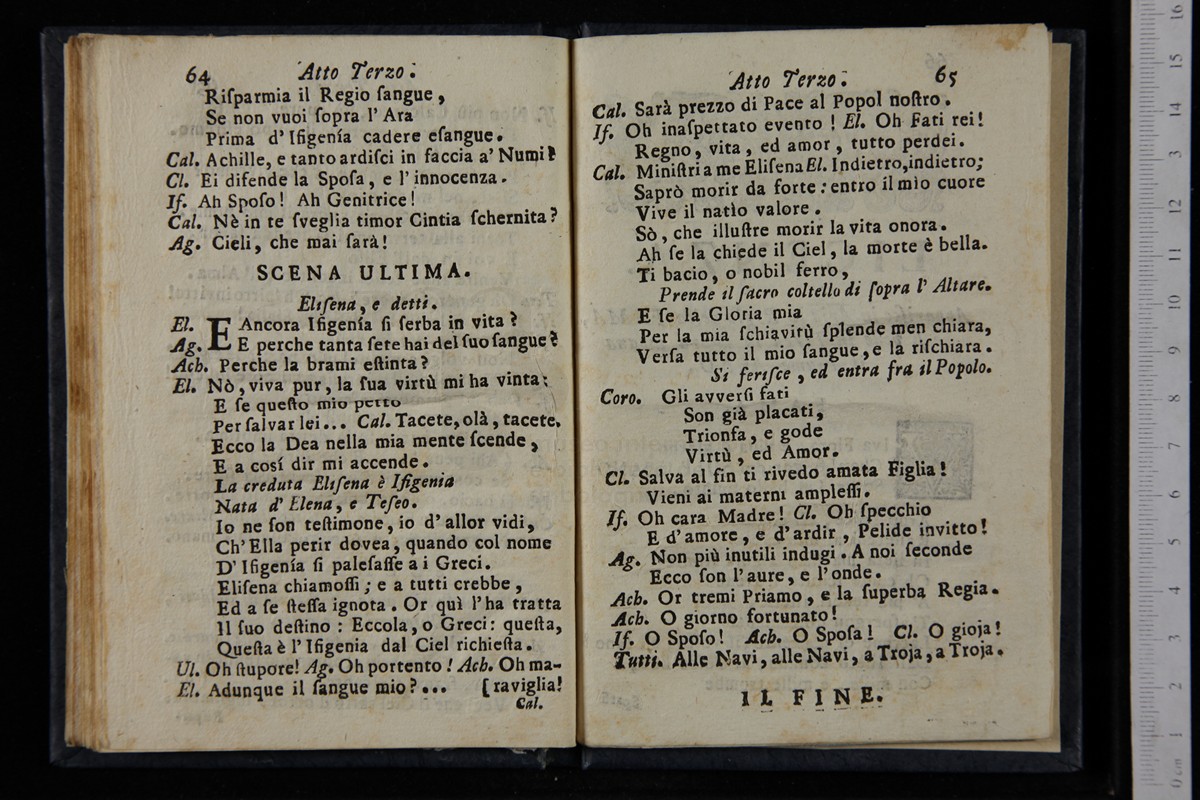 64 Atto Terzo.
Riſparmia il Regio ſangue,
Se non vuoi ſopra l'Ara
Prima d'Ifigenía cadere eſangue.
Cal. Achille, e tanto ardiſci in faccia a' Numi?
Cl. Ei difende la Spoſa, e l'innocenza.
If. Ah Spoſo! Ah Genitrice!
Cal. Nè in te ſveglia timor Cintia ſchernita?
Ag. Cieli, che mai ſarà!
SCENA ULTIMA.
Eliſena, e detti.
El. E Ancora Ifigenía ſi ſerba in vita?
Ag. E perche tanta ſete hai del ſuo ſangue?
Ach. Perche la brami eſtinta?
El. Nò, viva pur, la ſua virtù mi ha vinta;
E ſe queſto mio petto
Per ſalvar lei... Cal. Tacete, olà, tacete.
Ecco la Dea nella mia mente ſcende,
E a cosí dir mi accende.
La creduta Eliſena è Ifigenia
Nata d'Elena, e Teſeo.
Io ne ſon teſtimone, io d'allor vidi,
Ch'Ella perir dovea, quando col nome
D'Ifigenía ſi paleſaſſe a i Greci.
Eliſena chiamoſſi; e a tutti crebbe,
Ed a ſe ſteſſa ignota. Or quì l'ha tratta
Il ſuo deſtino: Eccola, o Greci: queſta,
Queſta è l'Ifigenia dal Ciel richieſta.
Ul. Oh ſtupore! Ag. Oh portento! Ach. Oh ma-
El. Adunque il ſangue mio?... [raviglia!
Cal.
Atto Terzo. 65
Cal. Sarà prezzo di Pace al Popol noſtro.
If. Oh inaſpettato evento! El. Oh Fati rei!
Regno, vita, ed amor, tutto perdei.
Cal. Miniſtri a me Eliſena El. Indietro, indietro;
Saprò morir da forte: entro il mìo cuore
Vive il natìo valore.
Sò, che illuſtre morir la vita onora.
Ah ſe la chiede il Ciel, la morte è bella.
Ti bacio, o nobil ferro,
Prende il ſacro coltello di ſopra l'Altare.
E ſe la Gloria mia
Per la mia ſchiavitù ſplende men chiara,
Verſa tutto il mio ſangue, e la riſchiara.
Si feriſce, ed entra fra il Popolo.
Coro. Gli avverſi fati
Son già placati,
Trionfa, e gode
Virtù, ed Amor.
Cl. Salva al fin ti rivedo amata Figlia!
Vieni ai materni ampleſſi.
If. Oh cara Madre! Cl. Oh ſpecchio
E d'amore, e d'ardir, Pelide invitto!
Ag. Non più inutili indugi. A noi ſeconde
Ecco ſon l'aure, e l'onde.
Ach. Or tremi Priamo, e la ſuperba Regia.
Ach. O giorno fortunato!
If. O Spoſo! Ach. O Spoſa! Cl. O gioja!
Tutti. Alle Navi, alle Navi, a Troja, a Troja.
IL FINE.
16
15
14
13
12
11
10
9
8
7
6
5
4
3
2
1
0 cm